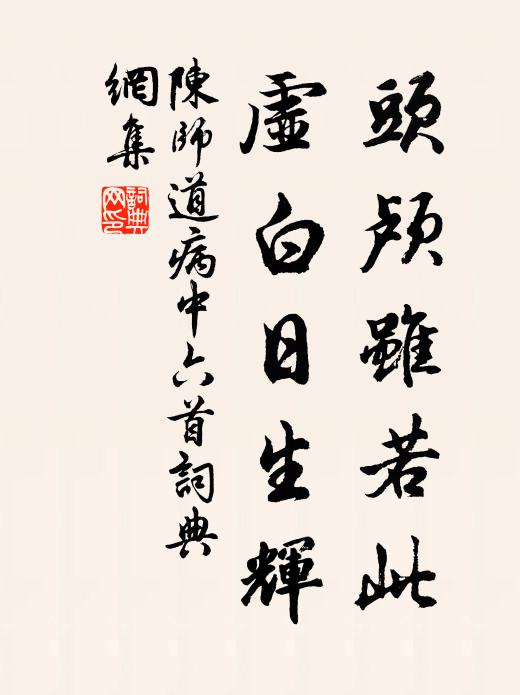 頭顱雖若此
虛白日生輝
陳師道病中六首詞典
網集
詞典
网印